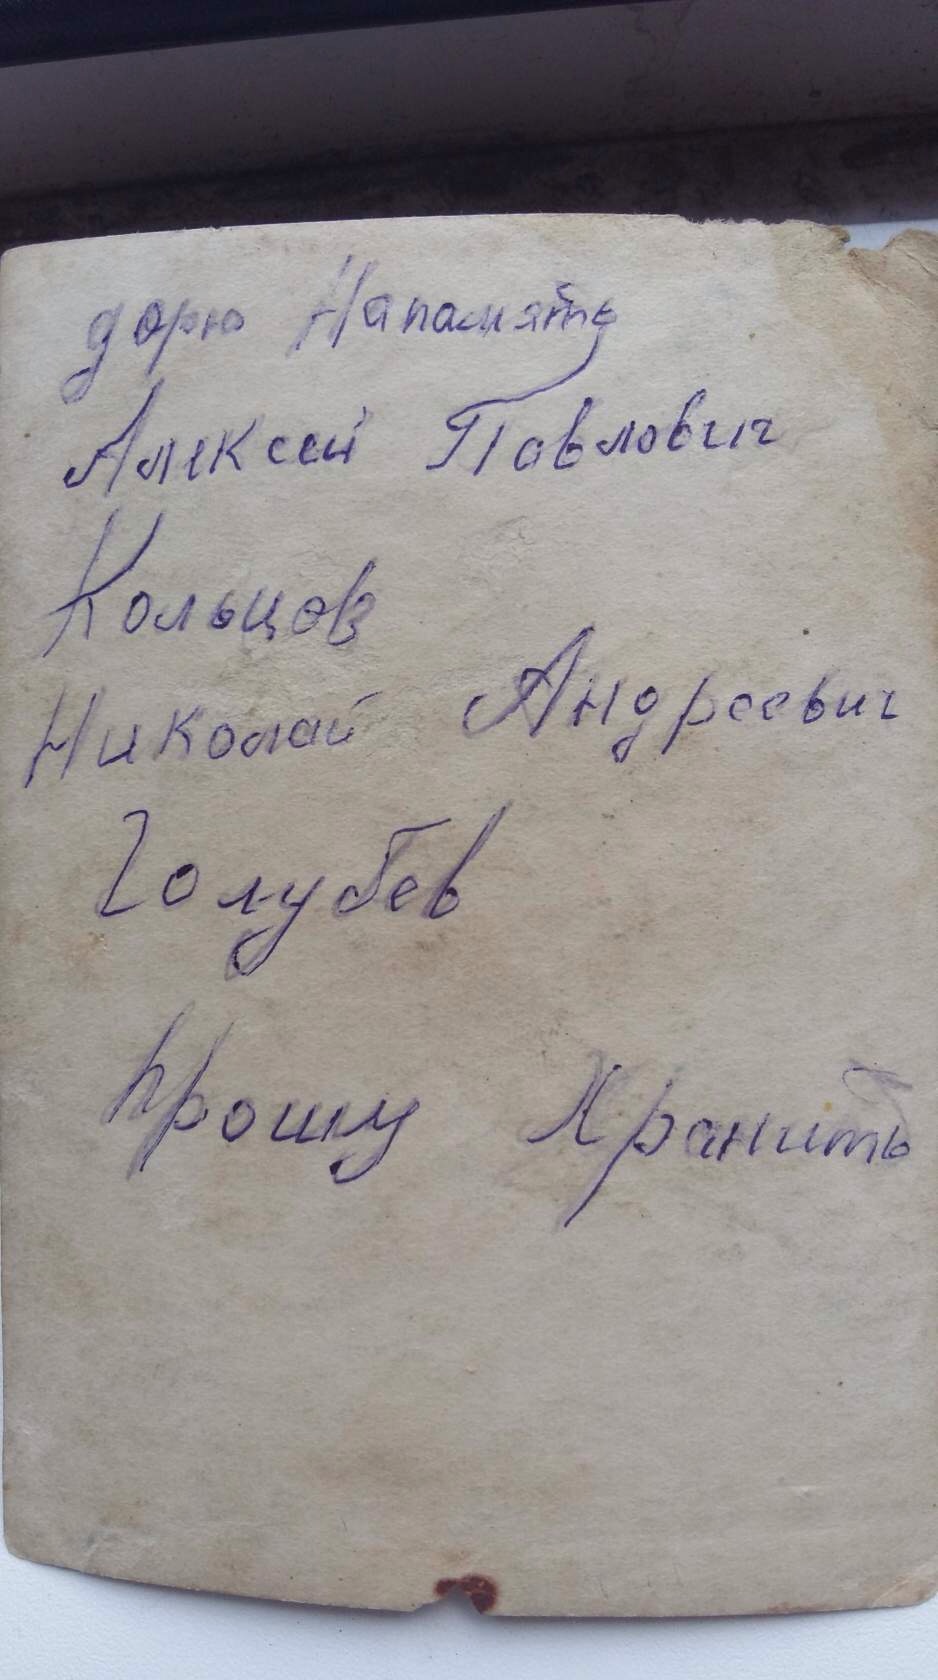 дорю Напамять
Алексей Павлович
Кольцов
Николай Андреевич
Голубев
Прошу Хранить